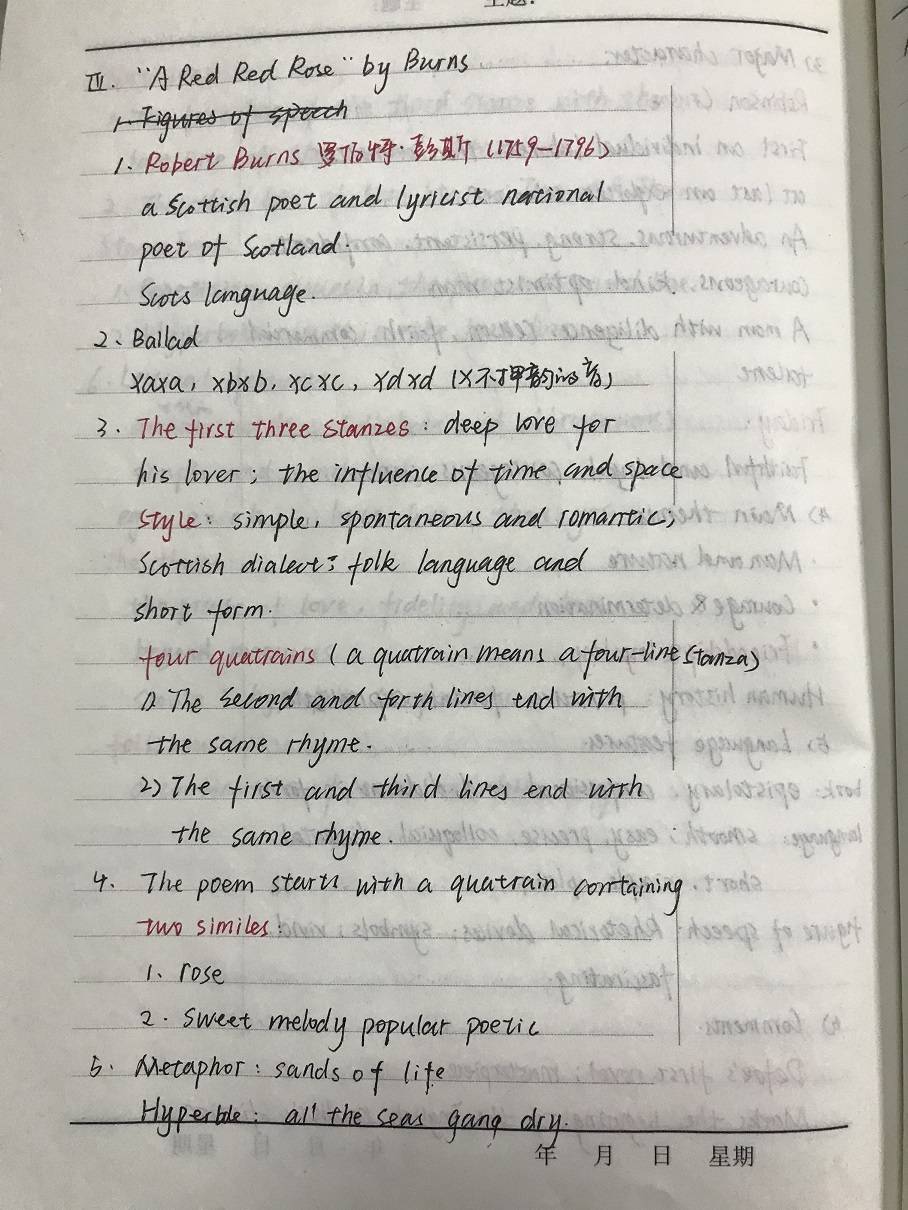 主题:
III. "A Red Red Rose" by Burns
1. Figures of speech
1. Robert Burns 罗伯特·彭斯 (1759-1796)
a Scottish poet and lyricist national
poet of Scotland.
Scots language.
2、Ballad
xaxa, xbxb, xcxc, xdxd (x不押韵的音)
3. The first three stanzes: deep love for
his lover; the influence of time and space
Style: simple, spontaneous and romantic;
Scottish dialect: folk language and
short form.
four quatrains (a quatrain means a four-line stanza)
1) The second and forth lines end with
the same rhyme.
2) The first and third lines end with
the same rhyme.
4. The poem starts with a quatrain containing
two similes:
1、rose
2. sweet melody popular poetic
5. Metaphor: sands of life
Hyperble: all the seas gang dry.
年 月 日 星期